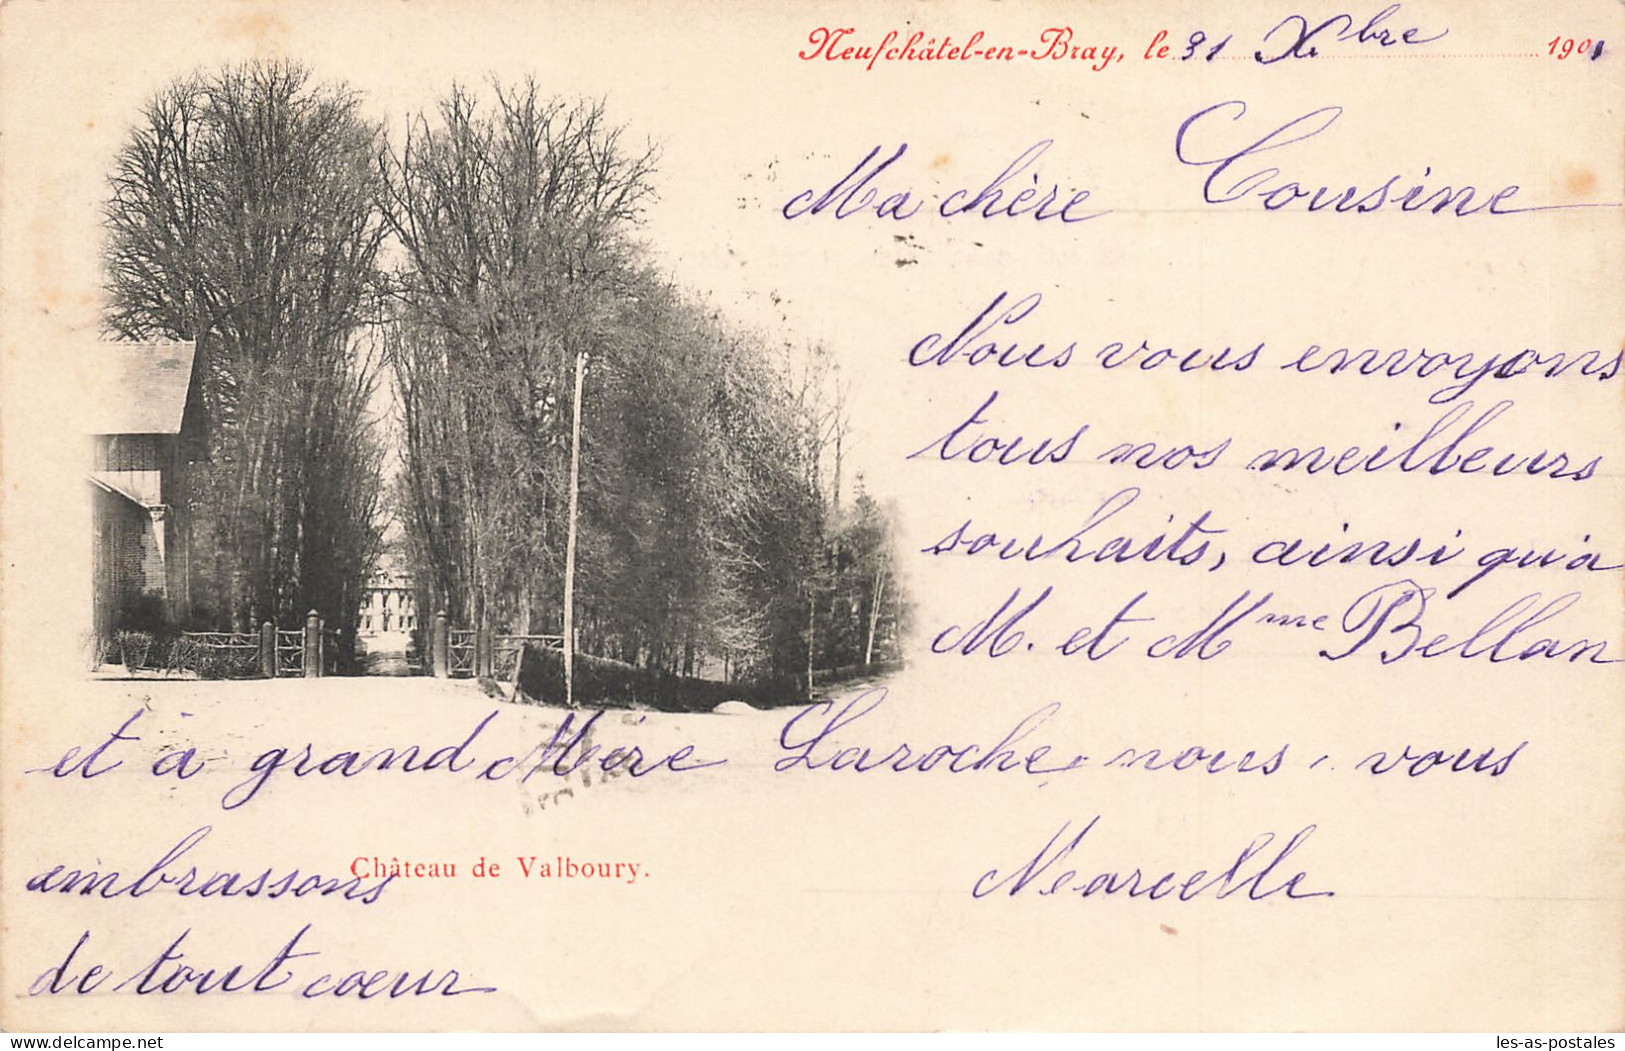 Neufchâtel-en-Bray, le 31 Xbre 1901
Ma chère Cousine
Nous vous envoyons
tous nos meilleurs
souhaits, ainsi qu'à
M. et Mme Bellan
et à grand Mère Laroche, nous, vous
embrassons
de tout coeur
Marcelle
Château de Valboury.
delcampe.net
les-as-postales